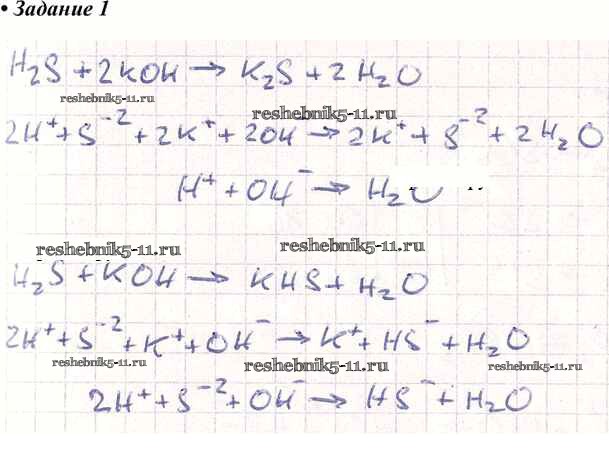 • Задание 1
H₂S + 2KOH → K₂S + 2H₂O
reshebnik5-11.ru
reshebnik5-11.ru
2H⁺ + S⁻² + 2K⁺ + 2OH → 2K⁺ + S⁻² + 2H₂O
H⁺ + OH⁻ → H₂O
reshebnik5-11.ru
reshebnik5-11.ru
H₂S + KOH → KHS + H₂O
2H⁺ + S⁻² + K⁺ + OH⁻ → K⁺ + HS⁻ + H₂O
reshebnik5-11.ru
reshebnik5-11.ru
reshebnik5-11.ru
2H⁺ + S⁻² + OH⁻ → HS⁻ + H₂O